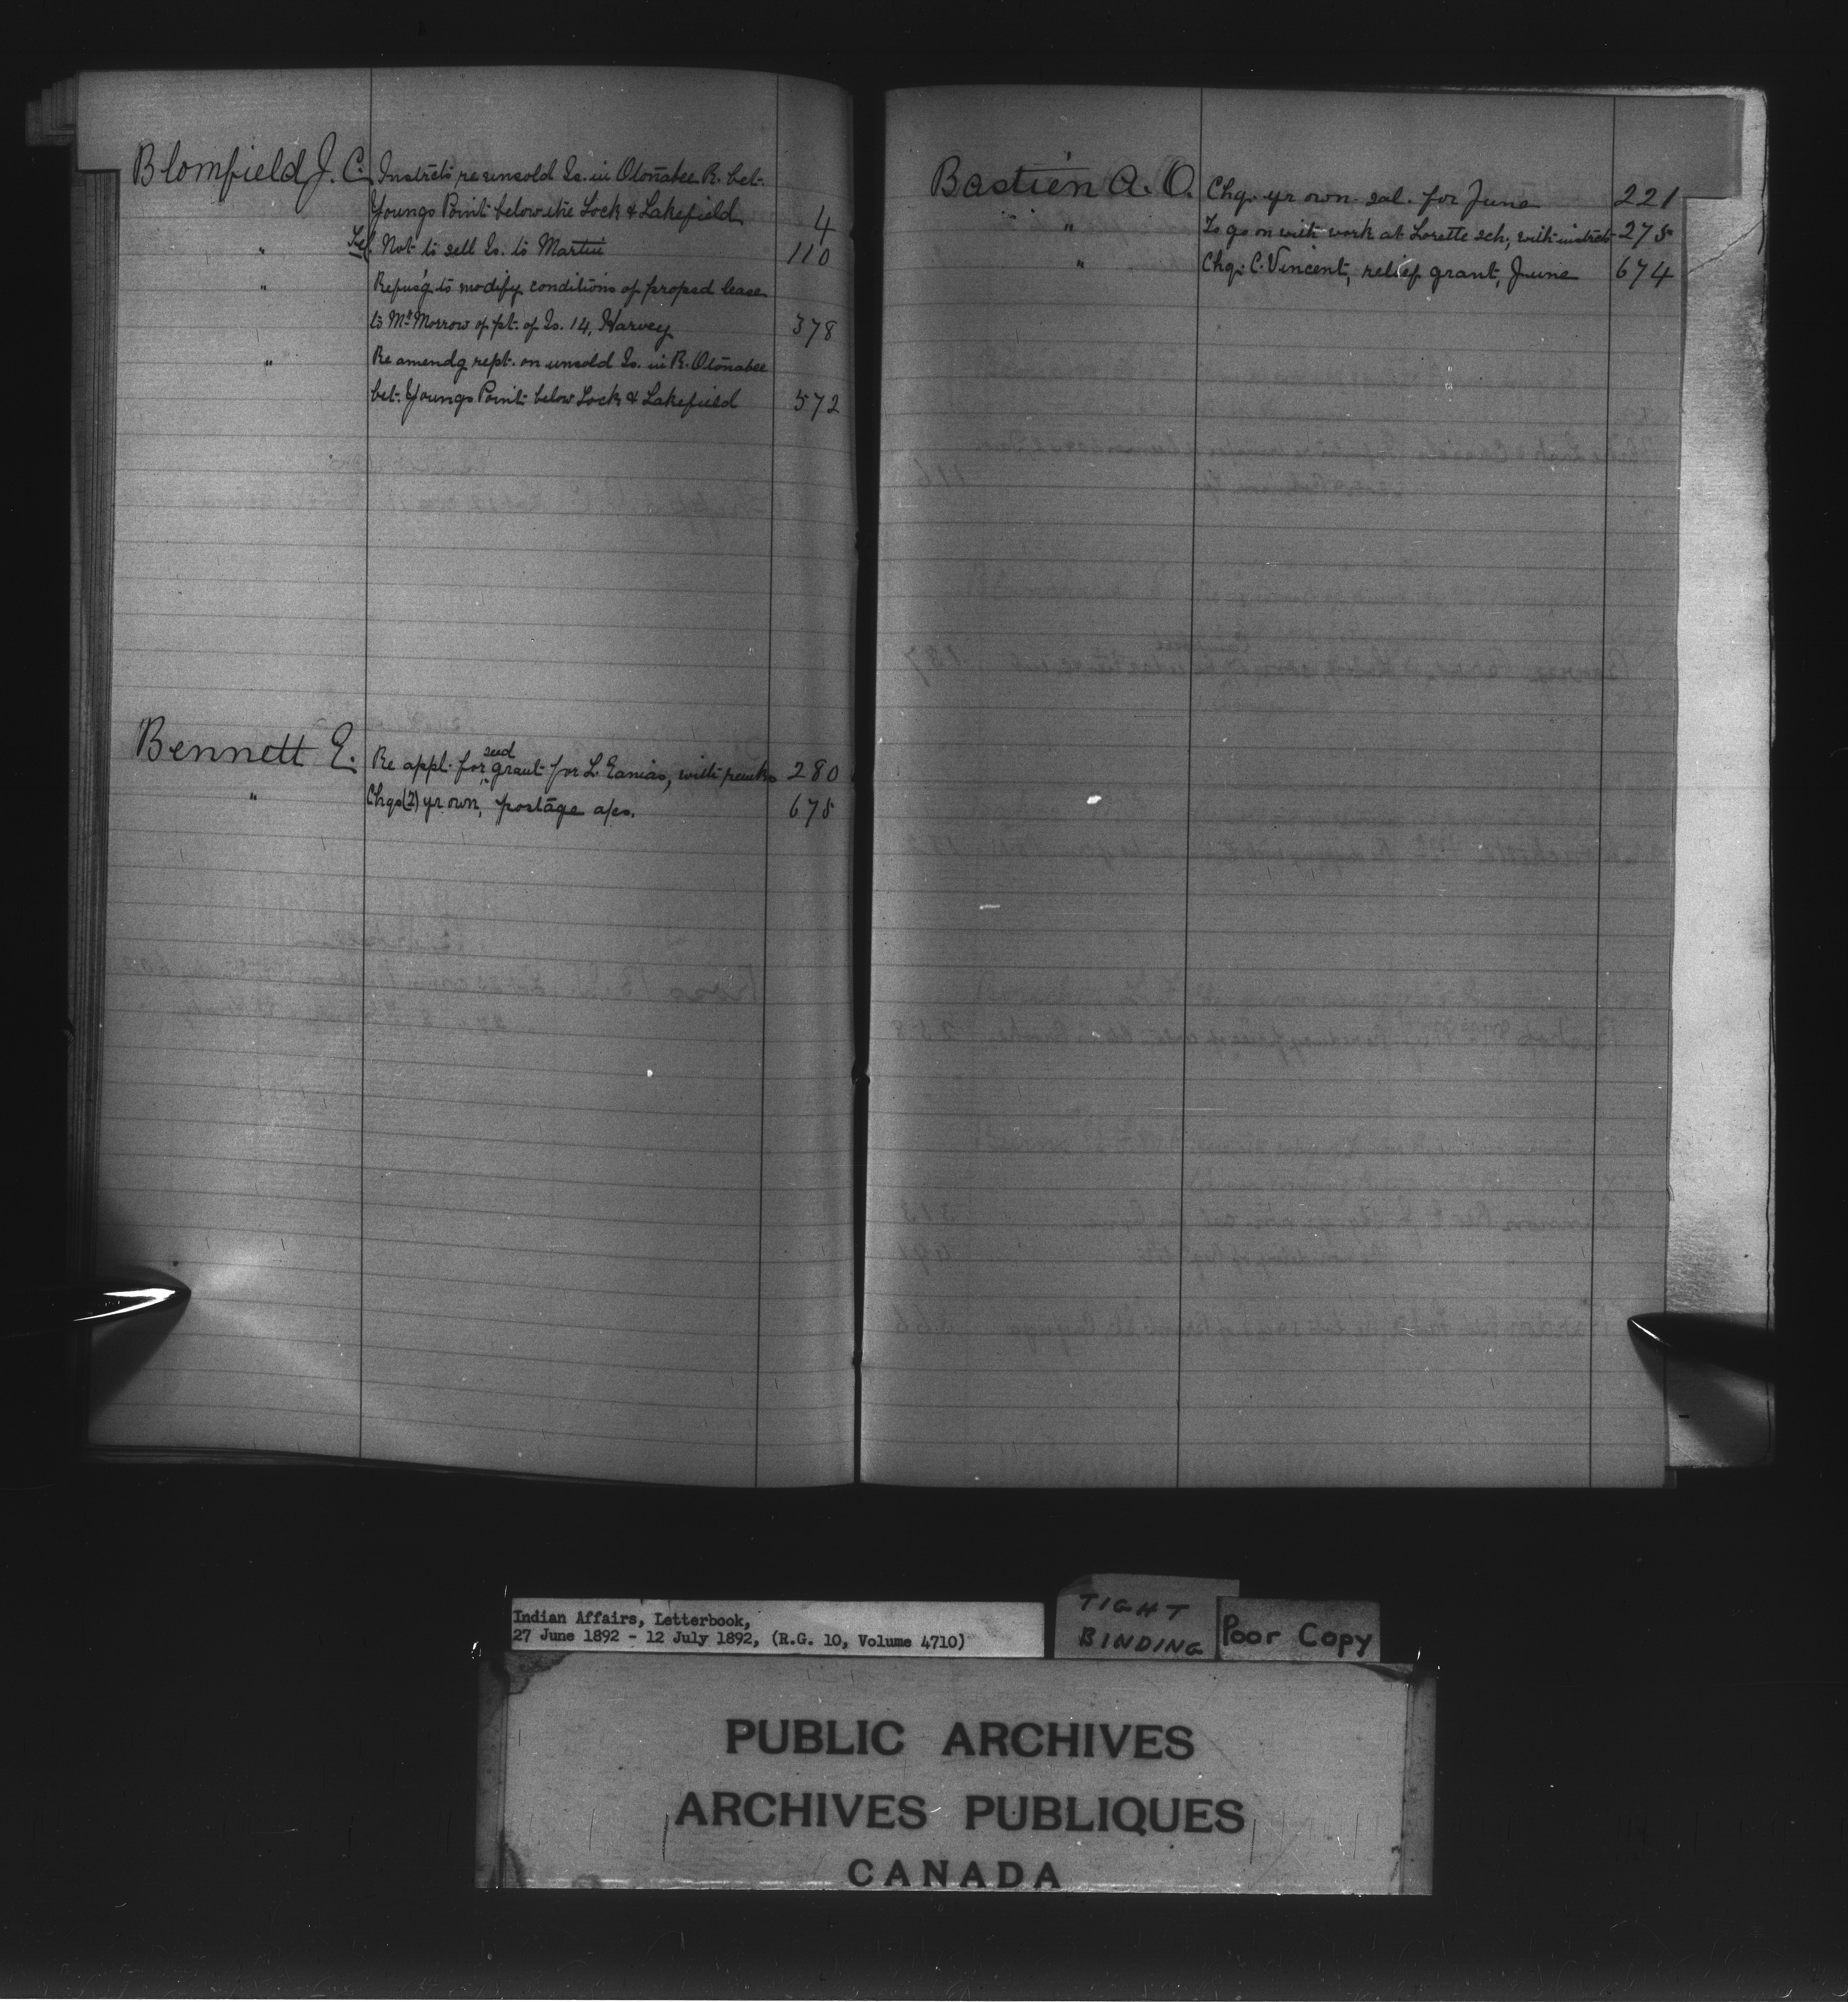 Blomfield J. C. Instrcts re unsold Is. in Otonabee R. bet.
Youngs Point below the Lock & Lakefield 4
" Tel. Not to sell Is. to Martin 110
" Refus'g to modify conditions of propsd lease
to Mr. Morrow of pt. of Is. 14, Harvey 378
" Re amendg rept. on unsold Is. in R. Otonabee
bet. Youngs Point below Lock & Lakefield 572
Bennett E. Re appl. for seed grant for L. , with 280
" Chqs (2) yr own, postage a/cs. 675
Bastien A. O. Chq. yr own sal. for June 221
" To go on with work at Lorette sch, with instrcts 275
" Chq. C. Vincent, relief grant, June 674
Indian Affairs, Letterbook,
27 June 1892 - 12 July 1892, (R.G. 10, Volume 4710)
TIGHT
BINDING
Poor Copy
PUBLIC ARCHIVES
ARCHIVES PUBLIQUES
CANADA